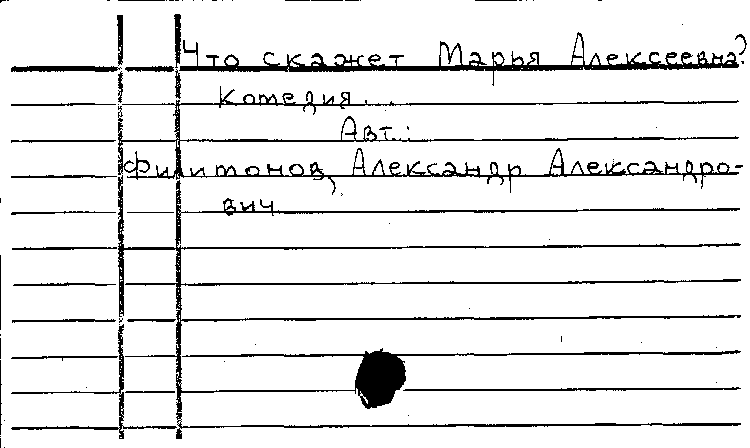 Что скажет Марья Алексеевна?
Комедия...
Авт.:
Филитонов, Александр Александро-
вич